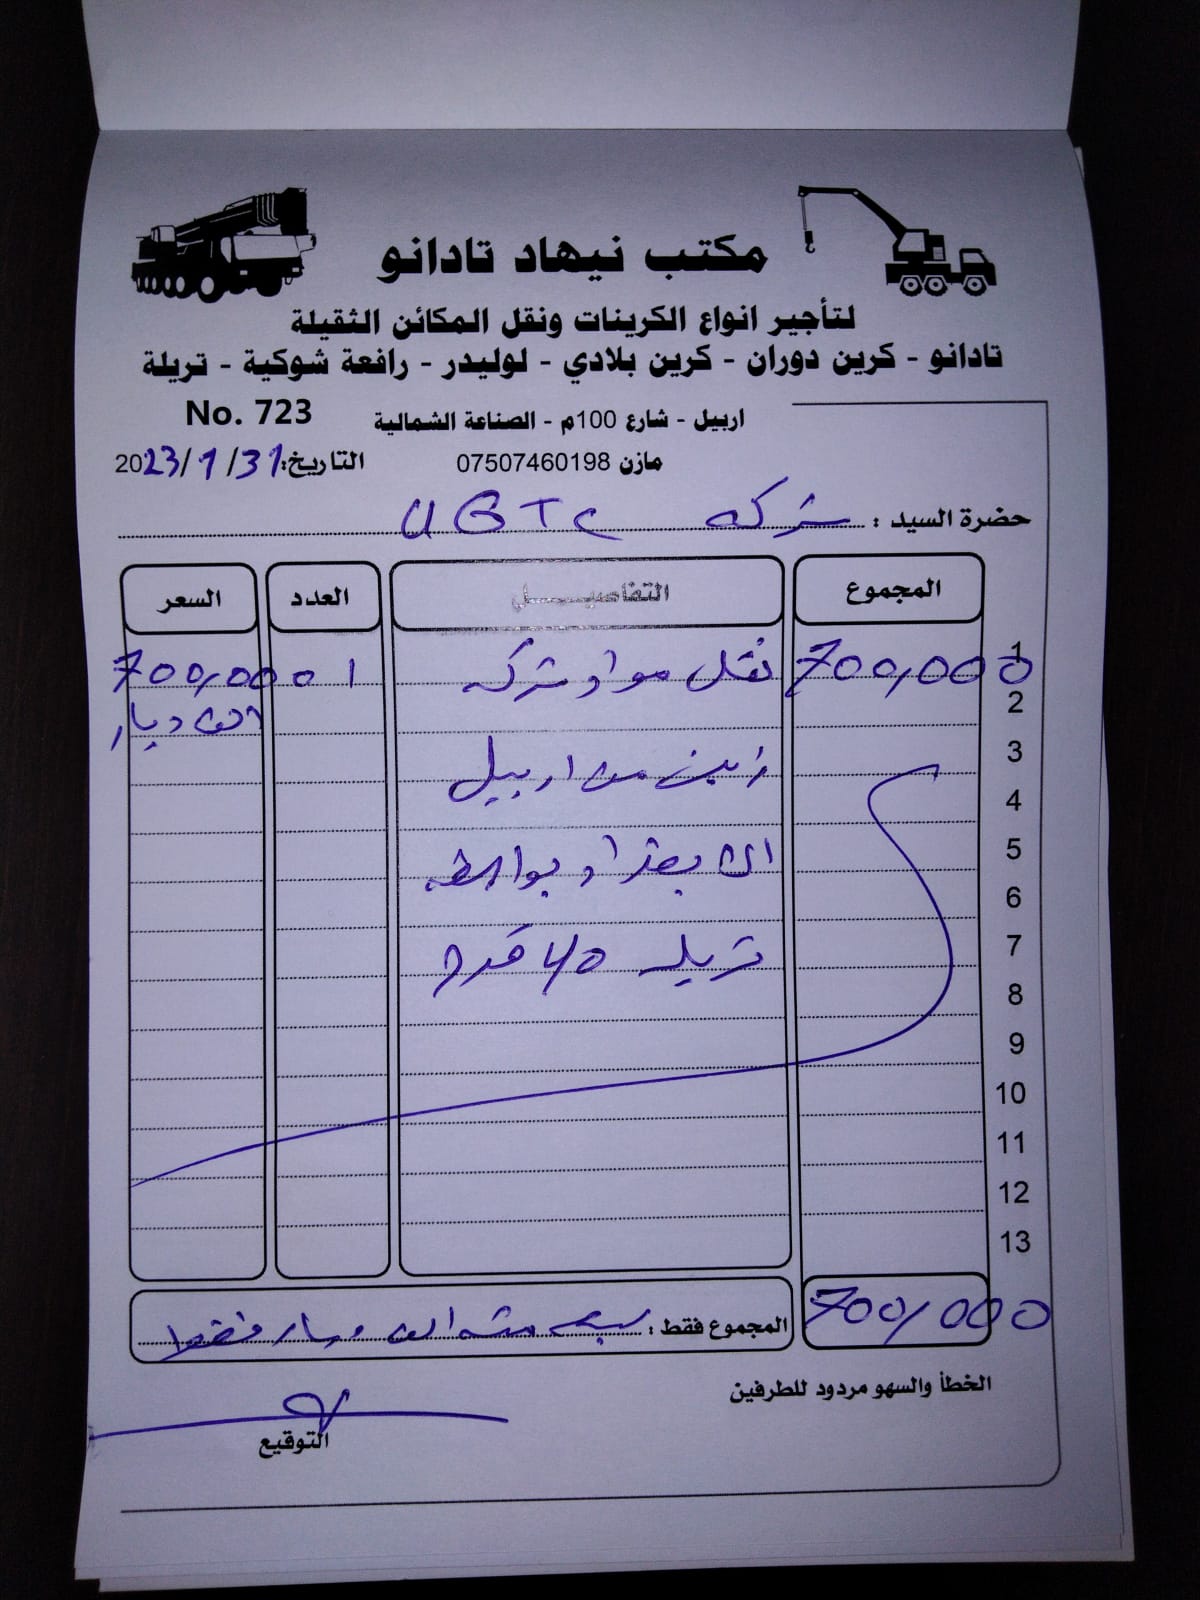 مكتب نيهاد تادانو
لتأجير انواع الكرينات ونقل المكائن الثقيلة
تادانو - كرين دوران - كرين بلادي - لوليدر - رافعة شوكية - تريلة
اربيل - شارع 100م - الصناعة الشمالية
No. 723
مازن 07507460198
التاريخ: 31/1/2023
حضرة السيد : شركه UBTC
المجموع التفاصيـــــل العدد السعر
1 700,000 نقل مواد شركه 1 700,000
2 الف دينار
3 زين من اربيل
4
5 الى بغداد بواسطه
6
7 تريله 40 قدم
8
9
10
11
12
13
700,000 المجموع فقط : سبعمئه الف دينار فقط
الخطأ والسهو مردود للطرفين
التوقيع